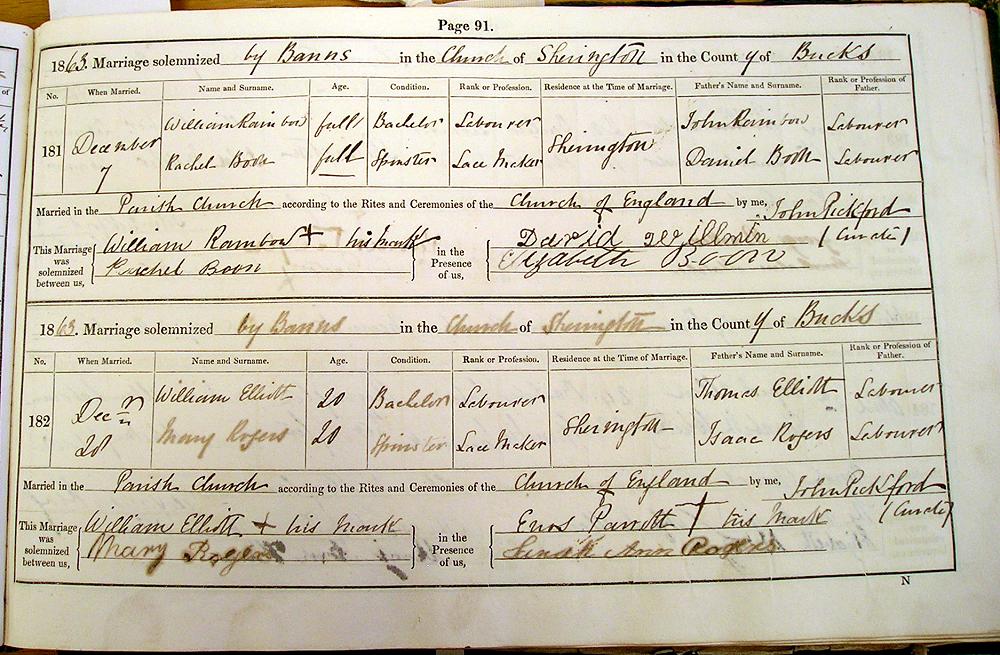 Page 91.
1863. Marriage solemnized by Banns in the Church of Sherington in the County of Bucks
No. When Married. Name and Surname. Age. Condition. Rank or Profession. Residence at the Time of Marriage. Father's Name and Surname. Rank or Profession of Father.
181 December 7 William Rainbow full Bachelor Labourer Sherington John Rainbow Labourer
Rachel Boon full Spinster Lace Maker Daniel Boon Labourer
Married in the Parish Church according to the Rites and Ceremonies of the Church of England by me, John Pickford (Curate)
This Marriage was solemnized between us, William Rambow + his mark
Rachel Boon
in the Presence of us, David Willmin
Elizabeth Boon
1863. Marriage solemnized by Banns in the Church of Sherington in the County of Bucks
No. When Married. Name and Surname. Age. Condition. Rank or Profession. Residence at the Time of Marriage. Father's Name and Surname. Rank or Profession of Father.
182 Decr 28 William Elliott 20 Bachelor Labourer Sherington Thomas Elliott Labourer
Mary Rogers 20 Spinster Lace Maker Isaac Rogers Labourer
Married in the Parish Church according to the Rites and Ceremonies of the Church of England by me, John Pickford (Curate)
This Marriage was solemnized between us, William Elliott + his mark
Mary Rogers
in the Presence of us, Enos Parrott + his Mark
Ann Rogers
N